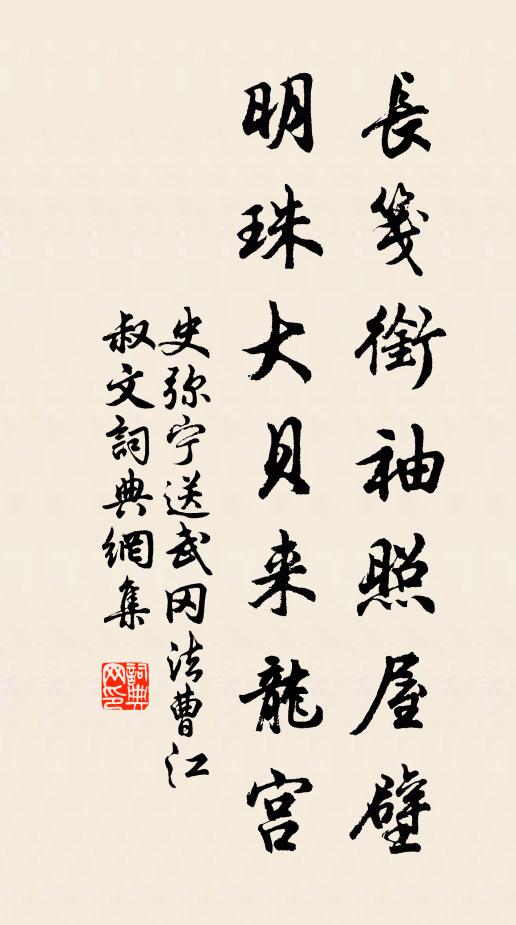 長箋銜袖照屋壁
明珠大貝来龍宫
史弥宁送武冈法曹江
叔文詞典網集
詞典网印